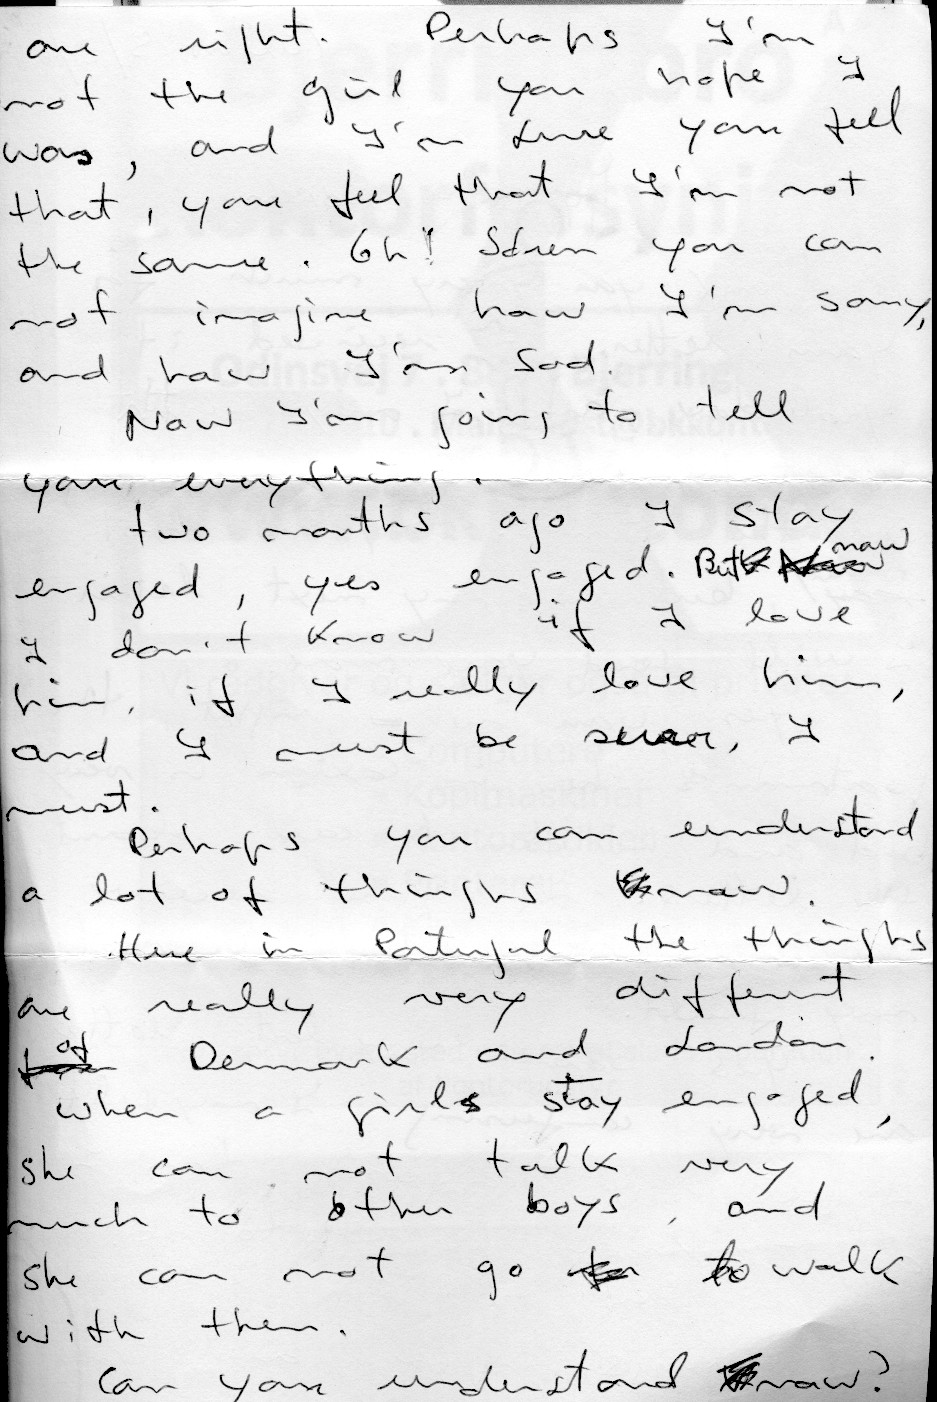 are right. Perhaps I'm
not the girl you hope I
was, and I'm sure you feel
that, you feel that I'm not
the same. Oh! Sören you can
not imagine haw I'm sorry,
and haw I'm sad.
Naw I'm going to tell
you everything.
two months ago I stay
engaged, yes engaged. But naw
I don't know if I love
him, if I really love him,
and I must be suer, I
must.
Perhaps you can understand
a lot of thinghs naw.
Here in Portugal the thinghs
are really very different
of Denmark and London.
when a girls stay engaged,
she can not talk very
much to other boys, and
she can not go to walk
with them.
Can you understand naw?